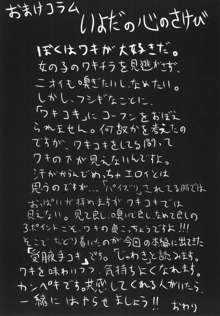 おまけコラム
いよだの心のさけび
ぼくはワキが大好きだ。
女の子のワキチラを見逃がさず、
ニオイも嗅ぎたいし、なめたい。
しかし、フシギなことに、
「ワキコキ」にコーフンをおぼえ
られません。何故かを考えたの
ですが、ワキコキをしてる間って
ワキの下が見えないんですよ。
汗がからんで、めっちゃエロイとは
思うのですが…「パイズリ」されてる時では
おっぱいが拝めますが、ワキコキでは
見えない。見て良し、嗅いで良し、なめて良しの
3ポイントこそ、ワキの良さでしょうですよ!!!
そこでたどり着いたのが今回の本編に出てきた
「脇手コキ」です。「じゃわきて」と読みます。
ワキを味わいつつ、気持ちよくなれます。
カンペキです。共感してくれる人がいたら、
一緒にはやらせましょう!!
おわり